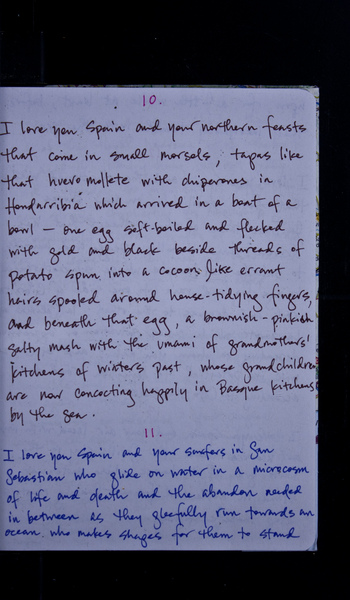 10.
I love you Spain and your northern feasts
that come in small morsels, tapas like
that huevo mollete with chiperones in
Hondarribia which arrived in a boat of a
bowl – one egg soft-boiled and flecked
with gold and black beside threads of
potato spun into a cocoon, like errant
hairs spooled around house-tidying fingers,
and beneath that egg, a brownish-pinkish
salty mash with the umami of grandmothers'
kitchens of winters past, whose grandchildren
are now concocting happily in Basque kitchens
by the sea.
11.
I love you Spain and your surfers in San
Sebastian who glide on water in a microcosm
of life and death and the abandon needed
in between as they gleefully run towards an
ocean who makes shapes for them to stand